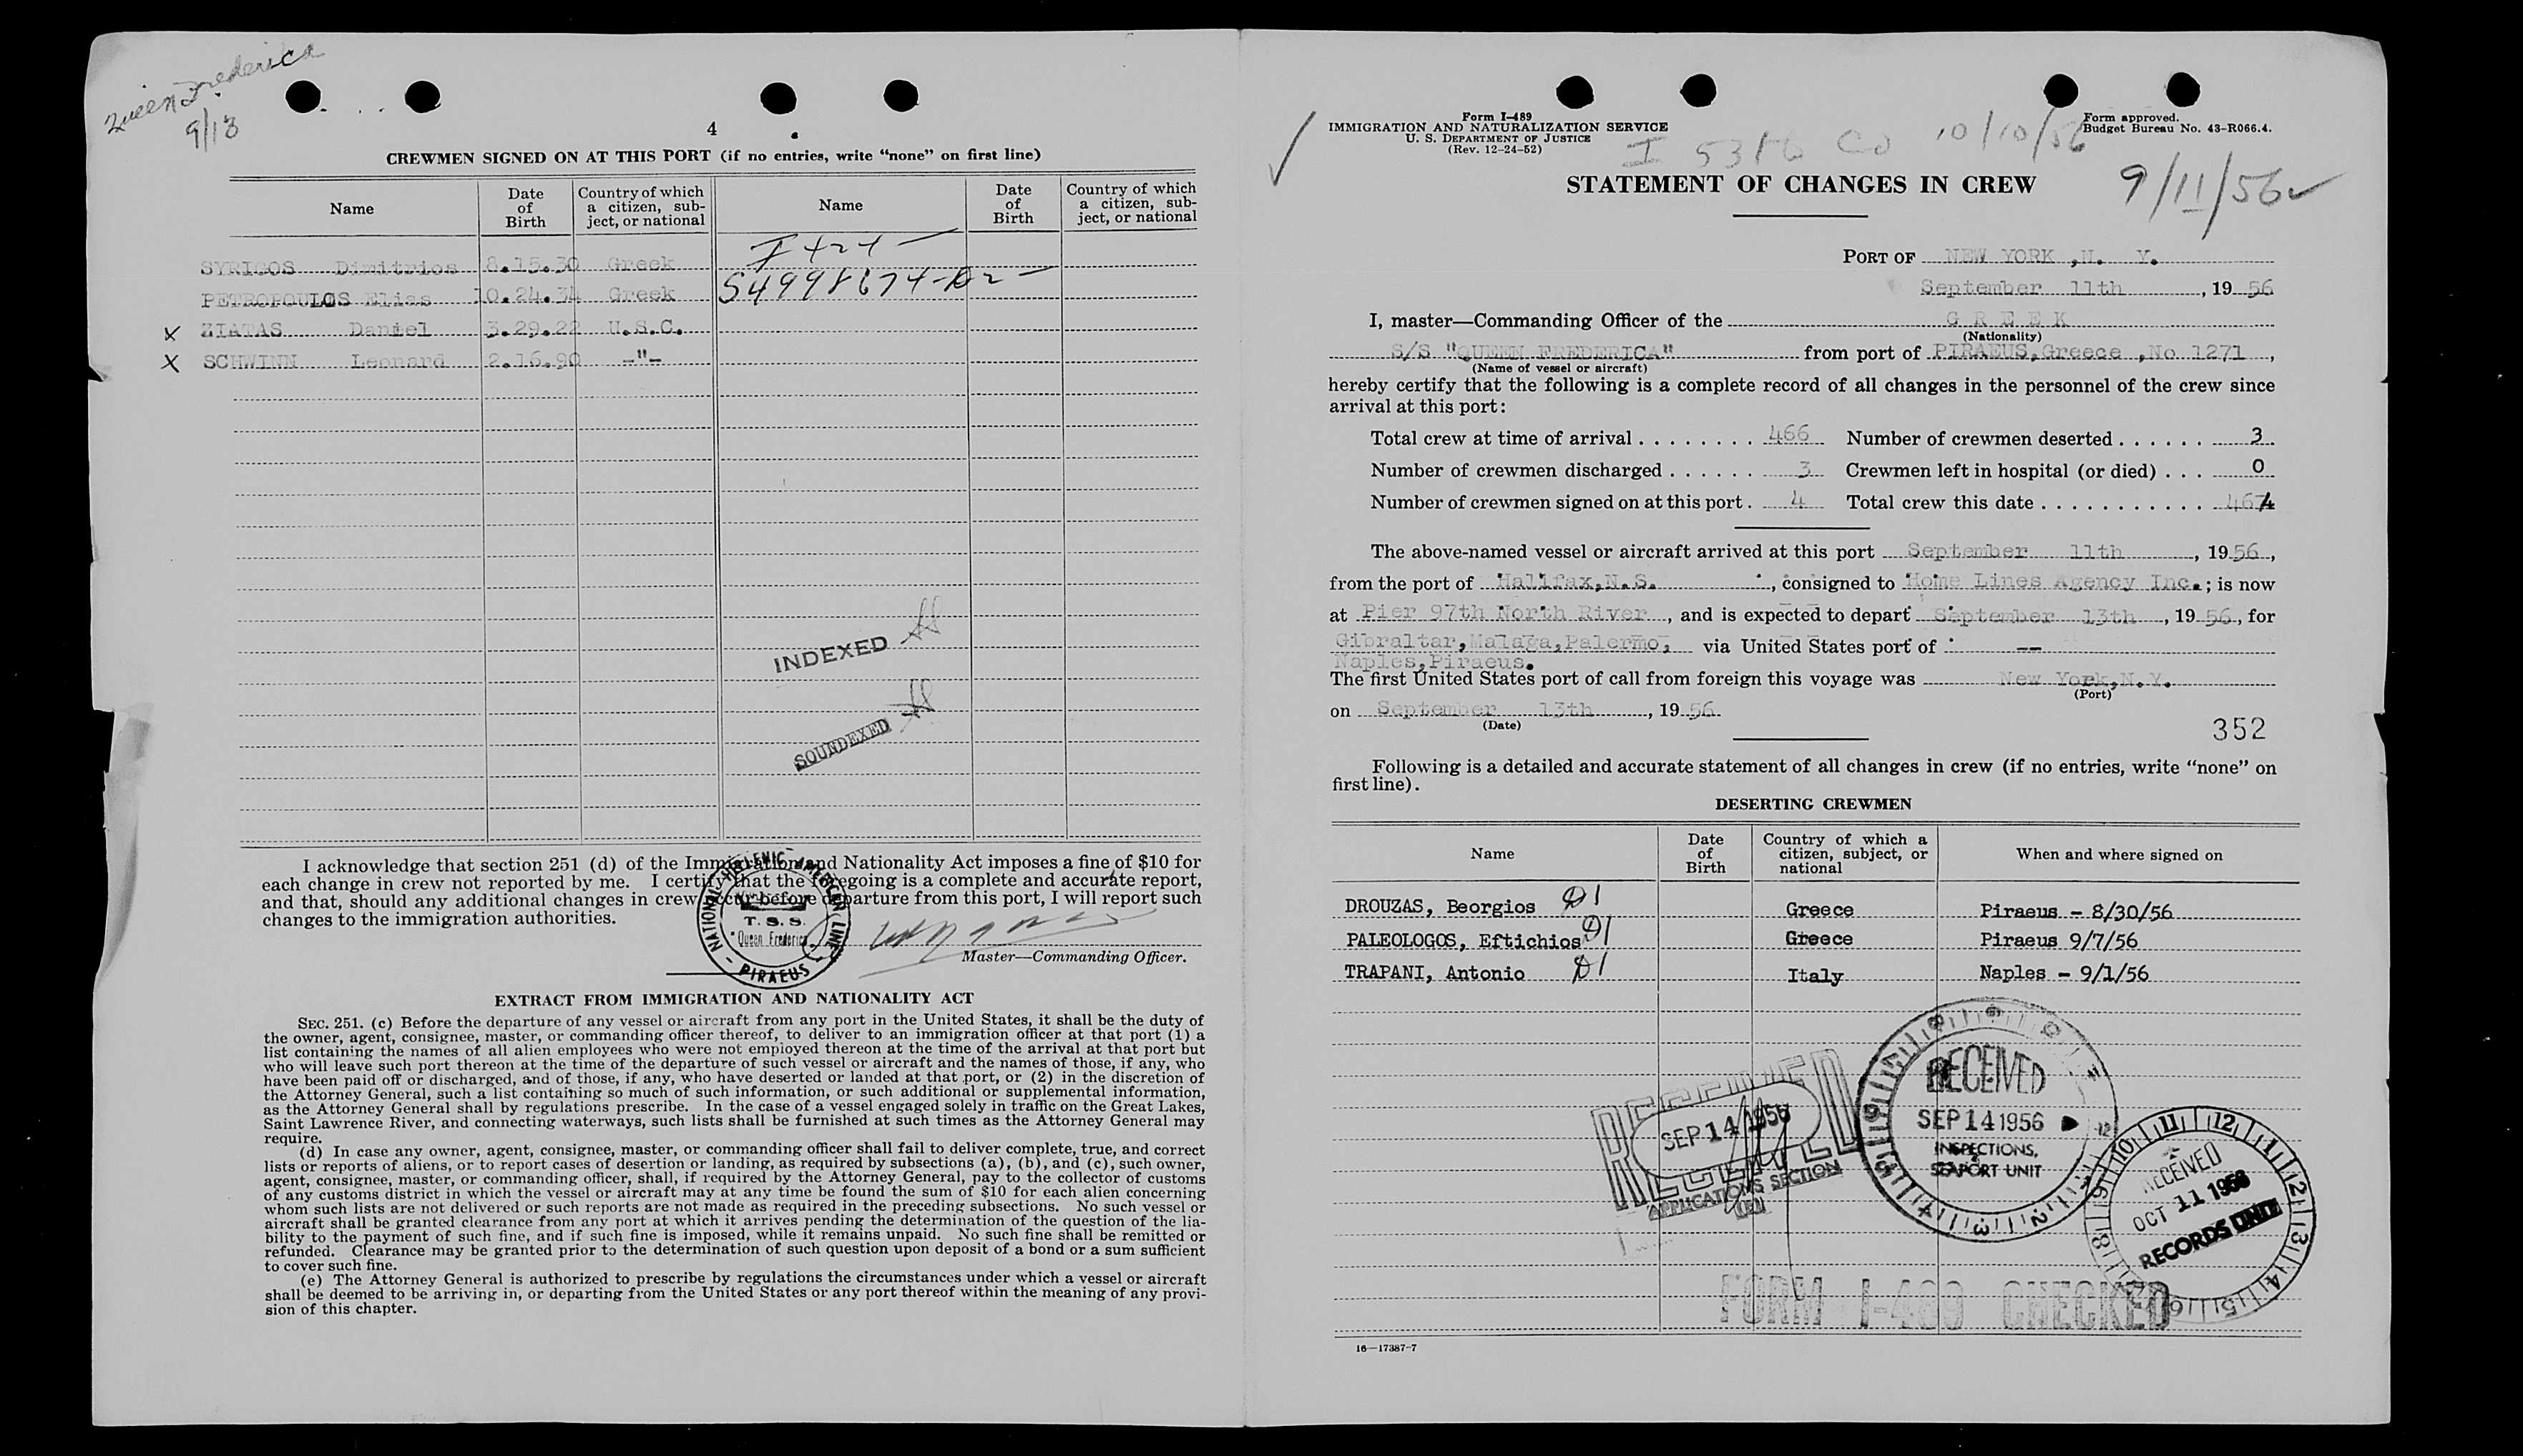 Queen Frederica
9/13
4
CREWMEN SIGNED ON AT THIS PORT (if no entries, write “none” on first line)
Name Date of Birth Country of which a citizen, subject, or national Name Date of Birth Country of which a citizen, subject, or national
SYRIGOS Dimitrios 8.15.30 Greek
PETROPOULOS Elias 10.24.34 Greek S4998674-D2 —
X ZIATAS Daniel 3.29.22 U.S.C.
X SCHWINN Leonard 2.16.90 -"-
INDEXED
SOUNDEXED
I acknowledge that section 251 (d) of the Immigration and Nationality Act imposes a fine of $10 for
each change in crew not reported by me. I certify that the foregoing is a complete and accurate report,
and that, should any additional changes in crew occur before departure from this port, I will report such
changes to the immigration authorities.
NATIONAL HELLENIC AMERICAN LINE
T. S. S.
"Queen Frederica"
PIRAEUS
Master—Commanding Officer.
EXTRACT FROM IMMIGRATION AND NATIONALITY ACT
SEC. 251. (c) Before the departure of any vessel or aircraft from any port in the United States, it shall be the duty of
the owner, agent, consignee, master, or commanding officer thereof, to deliver to an immigration officer at that port (1) a
list containing the names of all alien employees who were not employed thereon at the time of the arrival at that port but
who will leave such port thereon at the time of the departure of such vessel or aircraft and the names of those, if any, who
have been paid off or discharged, and of those, if any, who have deserted or landed at that port, or (2) in the discretion of
the Attorney General, such a list containing so much of such information, or such additional or supplemental information,
as the Attorney General shall by regulations prescribe. In the case of a vessel engaged solely in traffic on the Great Lakes,
Saint Lawrence River, and connecting waterways, such lists shall be furnished at such times as the Attorney General may
require.
(d) In case any owner, agent, consignee, master, or commanding officer shall fail to deliver complete, true, and correct
lists or reports of aliens, or to report cases of desertion or landing, as required by subsections (a), (b), and (c), such owner,
agent, consignee, master, or commanding officer, shall, if required by the Attorney General, pay to the collector of customs
of any customs district in which the vessel or aircraft may at any time be found the sum of $10 for each alien concerning
whom such lists are not delivered or such reports are not made as required in the preceding subsections. No such vessel or
aircraft shall be granted clearance from any port at which it arrives pending the determination of the question of the lia-
bility to the payment of such fine, and if such fine is imposed, while it remains unpaid. No such fine shall be remitted or
refunded. Clearance may be granted prior to the determination of such question upon deposit of a bond or a sum sufficient
to cover such fine.
(e) The Attorney General is authorized to prescribe by regulations the circumstances under which a vessel or aircraft
shall be deemed to be arriving in, or departing from the United States or any port thereof within the meaning of any provi-
sion of this chapter.
Form I-489
IMMIGRATION AND NATURALIZATION SERVICE
U. S. DEPARTMENT OF JUSTICE
(Rev. 12-24-52)
Form approved.
Budget Bureau No. 43-R066.4.
10/10/56
STATEMENT OF CHANGES IN CREW
9/11/56
PORT OF NEW YORK ,N. Y.
September 11th , 19 56
I, master—Commanding Officer of the G R E E K
(Nationality)
S/S "QUEEN FREDERICA" from port of PIRAEUS,Greece ,No 1271 ,
(Name of vessel or aircraft)
hereby certify that the following is a complete record of all changes in the personnel of the crew since
arrival at this port:
Total crew at time of arrival . . . . . . . . 466 Number of crewmen deserted . . . . . . 3
Number of crewmen discharged . . . . . . 3 Crewmen left in hospital (or died) . . . 0
Number of crewmen signed on at this port . 4 Total crew this date . . . . . . . . . . . 464
The above-named vessel or aircraft arrived at this port September 11th , 19 56 ,
from the port of Halifax,N.S. , consigned to Home Lines Agency Inc. ; is now
at Pier 97th North River , and is expected to depart September 13th , 19 56 , for
Gibraltar,Malaga,Palermo, via United States port of --
Naples,Piraeus.
The first United States port of call from foreign this voyage was New York,N.Y.
(Port)
on September 13th , 19 56
(Date)
352
Following is a detailed and accurate statement of all changes in crew (if no entries, write “none” on
first line).
DESERTING CREWMEN
Name Date of Birth Country of which a citizen, subject, or national When and where signed on
DROUZAS, Beorgios D1 Greece Piraeus - 8/30/56
PALEOLOGOS, Eftichios D1 Greece Piraeus 9/7/56
TRAPANI, Antonio D1 Italy Naples - 9/1/56
RECEIVED
SEP 14 1956
APPLICATIONS SECTION
RECEIVED
SEP 14 1956
INSPECTIONS,
SEAPORT UNIT
RECEIVED
OCT 11 1956
RECORDS UNIT
FORM I-489 CHECKED
16—17387-7